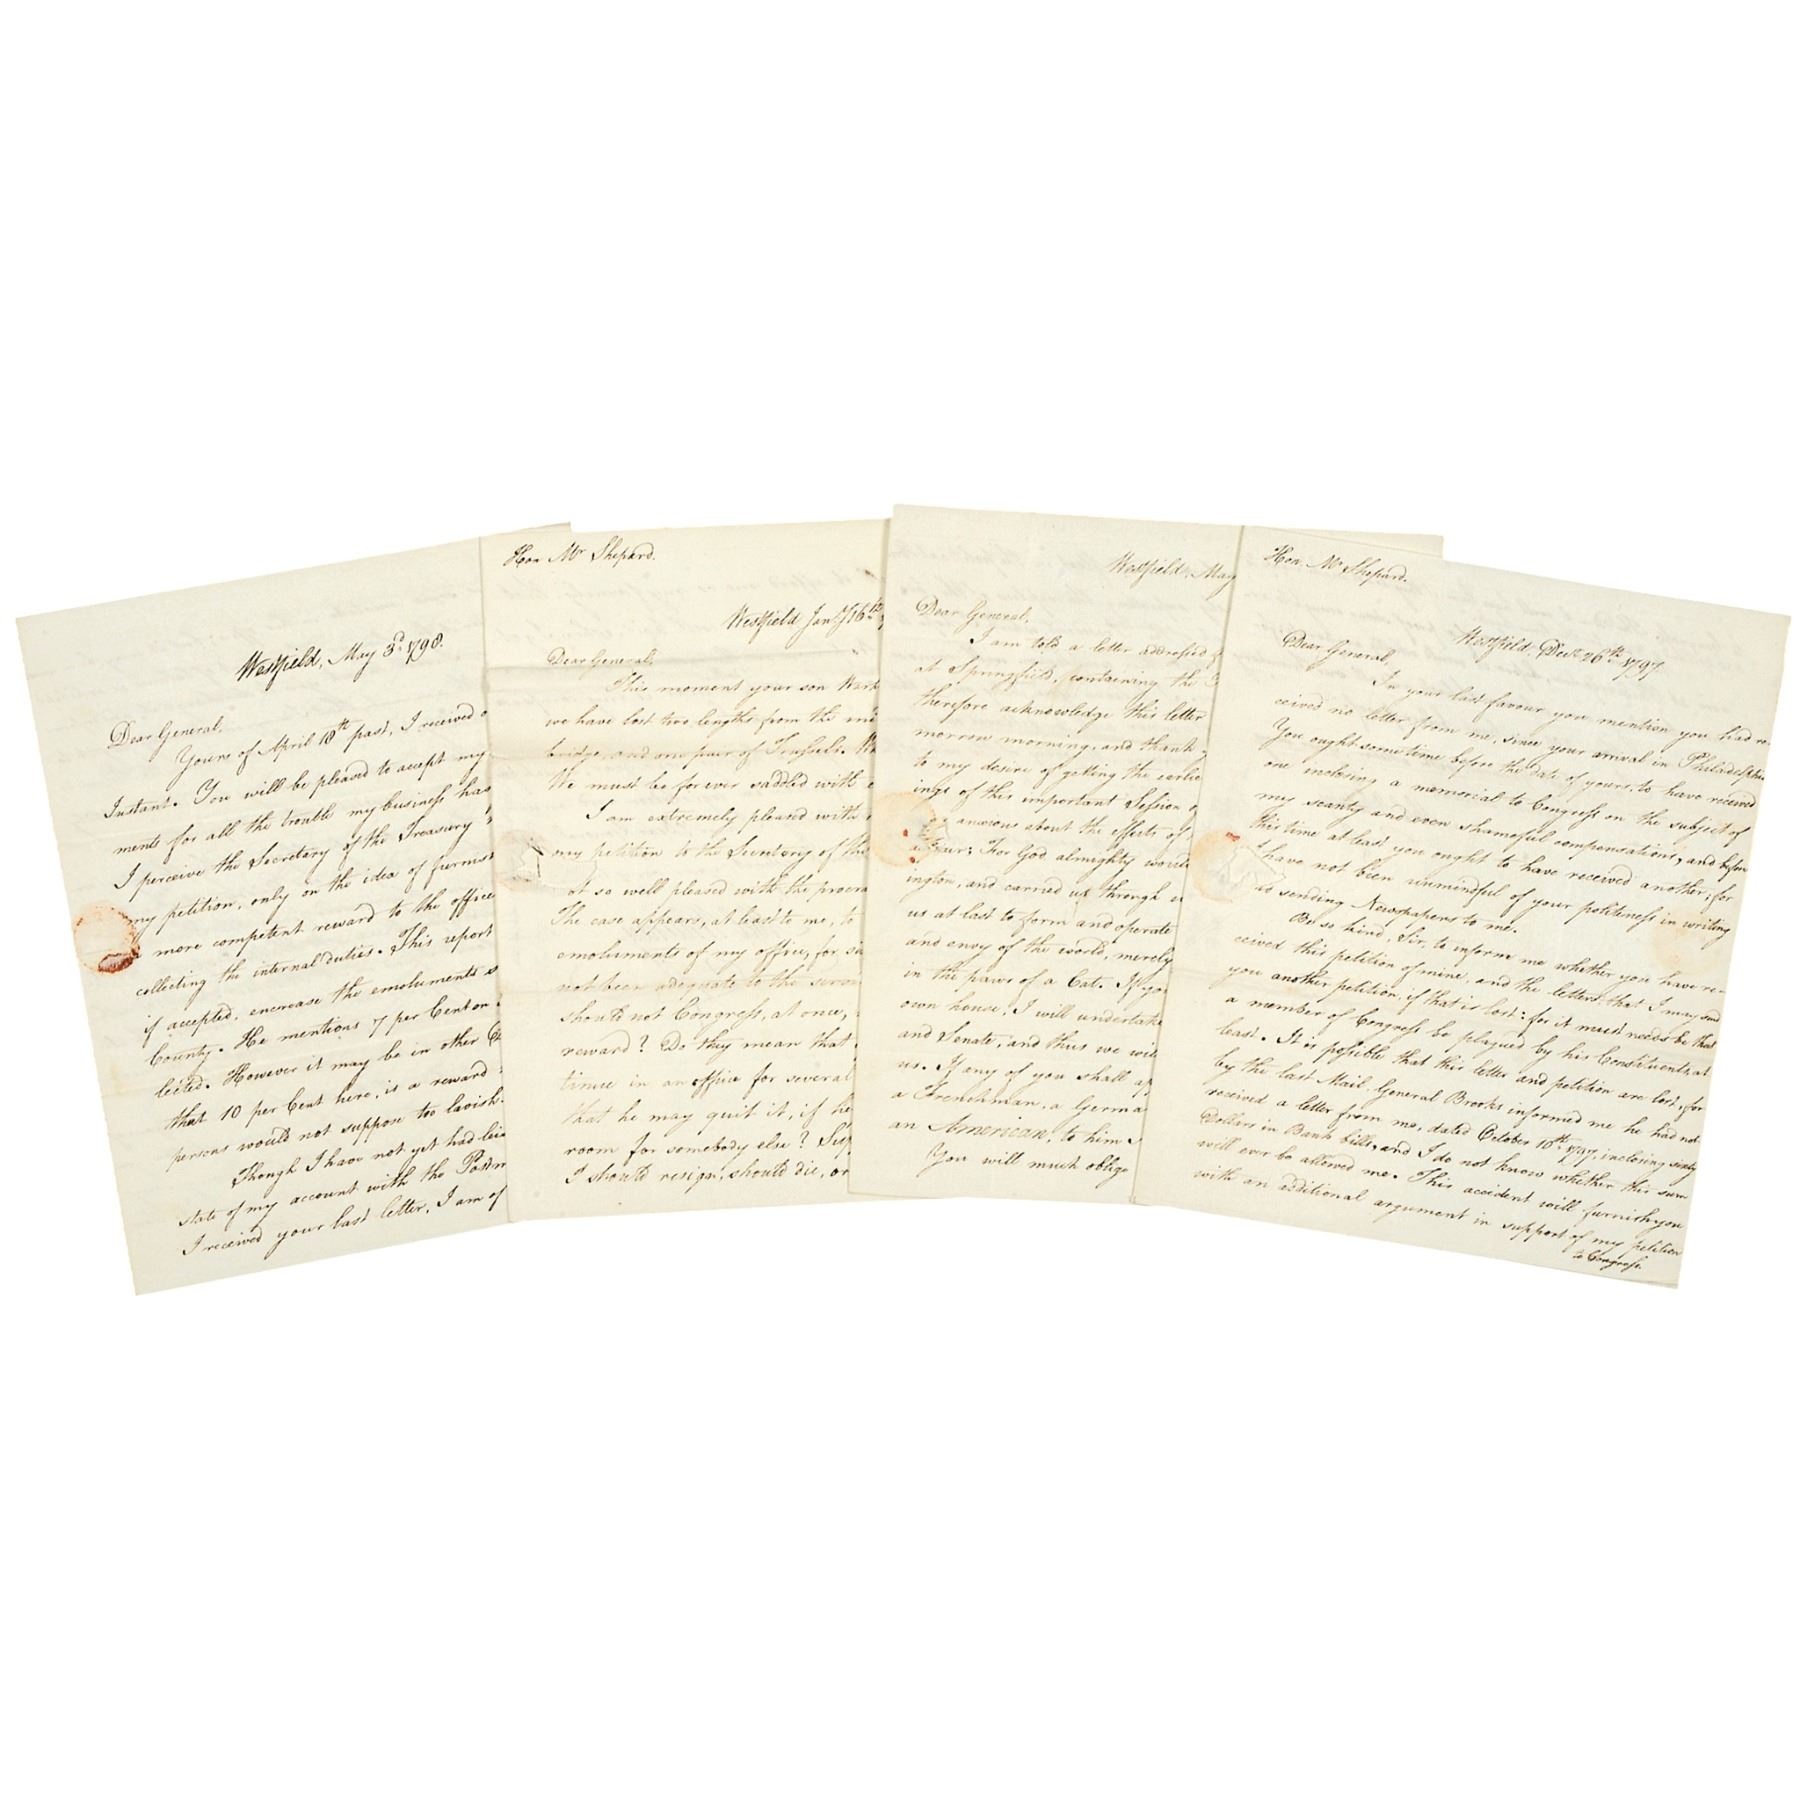 Westfield, May 3d. 1798.
Dear General,
Yours of April 18th past, I received
Instant. You will be pleased to accept my
ments for all the trouble my business has
I perceive the Secretary of the Treasury
my petition, only on the idea of furnish
more competent reward to the office
collecting the internal duties. This report
if accepted, encrease the emoluments
County. He mentions 7 per Cent on
lected. However it may be in other C
that 10 per Cent here, is a reward
persons would not suppose too lavish.
Though I have not yet had
state of my account with the Postm
I received your last letter, I am of
Hon Mr Shepard.
Westfield Jany 16th
Dear General,
This moment your son
we have lost two lengths from the
bridge, and one pair of Trussels.
We must be forever saddled with
I am extremely pleased with
my petition to the Secretary of the
ot so well pleased with the
The case appears, at least to me, to
emoluments of my office, for
not been adequate to the
should not Congress, at once,
reward? Do they mean that
tinue in an office for several
that he may quit it, if he
room for somebody else? Sup
I should resign, should die, or
Westfield, May
Dear General,
I am told a letter addressed
at Springfield, containing the
therefore acknowledge this letter
morrow morning, and thank
to my desire of getting the earlie
ings of this important Session
anxious about the effects of
For God almighty
ington, and carried us through
us at last to form and operate
and envy of the world, merely
in the paws of a Cat. If you
own house, I will undertake
and Senate, and thus we wil
us. If any of you shall ap
a Frenchman, a Germa
an American, to him
You will much oblige
Hon. Mr Shepard.
Westfield, Decr 26th 1797
Dear General,
In your last favour you mention you had re-
ceived no letter from me, since your arrival in Philadelphia
You ought sometime before the date of yours, to have received
one inclosing a memorial to Congress on the subject of
my scanty and even shameful compensations, and before
this time at least you ought to have received another; for
I have not been unmindful of your politeness in writing
and sending Newspapers to me.
Be so kind, Sir, to inform me whether you have re-
ceived this petition of mine, and the letters, that I may send
you another petition, if that is lost: for it must needs be that
a member of Congress be plagued by his Constituents, at
least. It is possible that this letter and petition are lost, for
by the last Mail, General Brooks informed me he had not
received a letter from me, dated October 10th 1797, inclosing sixty
Dollars in Bank bills, and I do not know whether this sum
will ever be allowed me. This accident will furnish you
with an additional argument in support of my petition
to Congress.